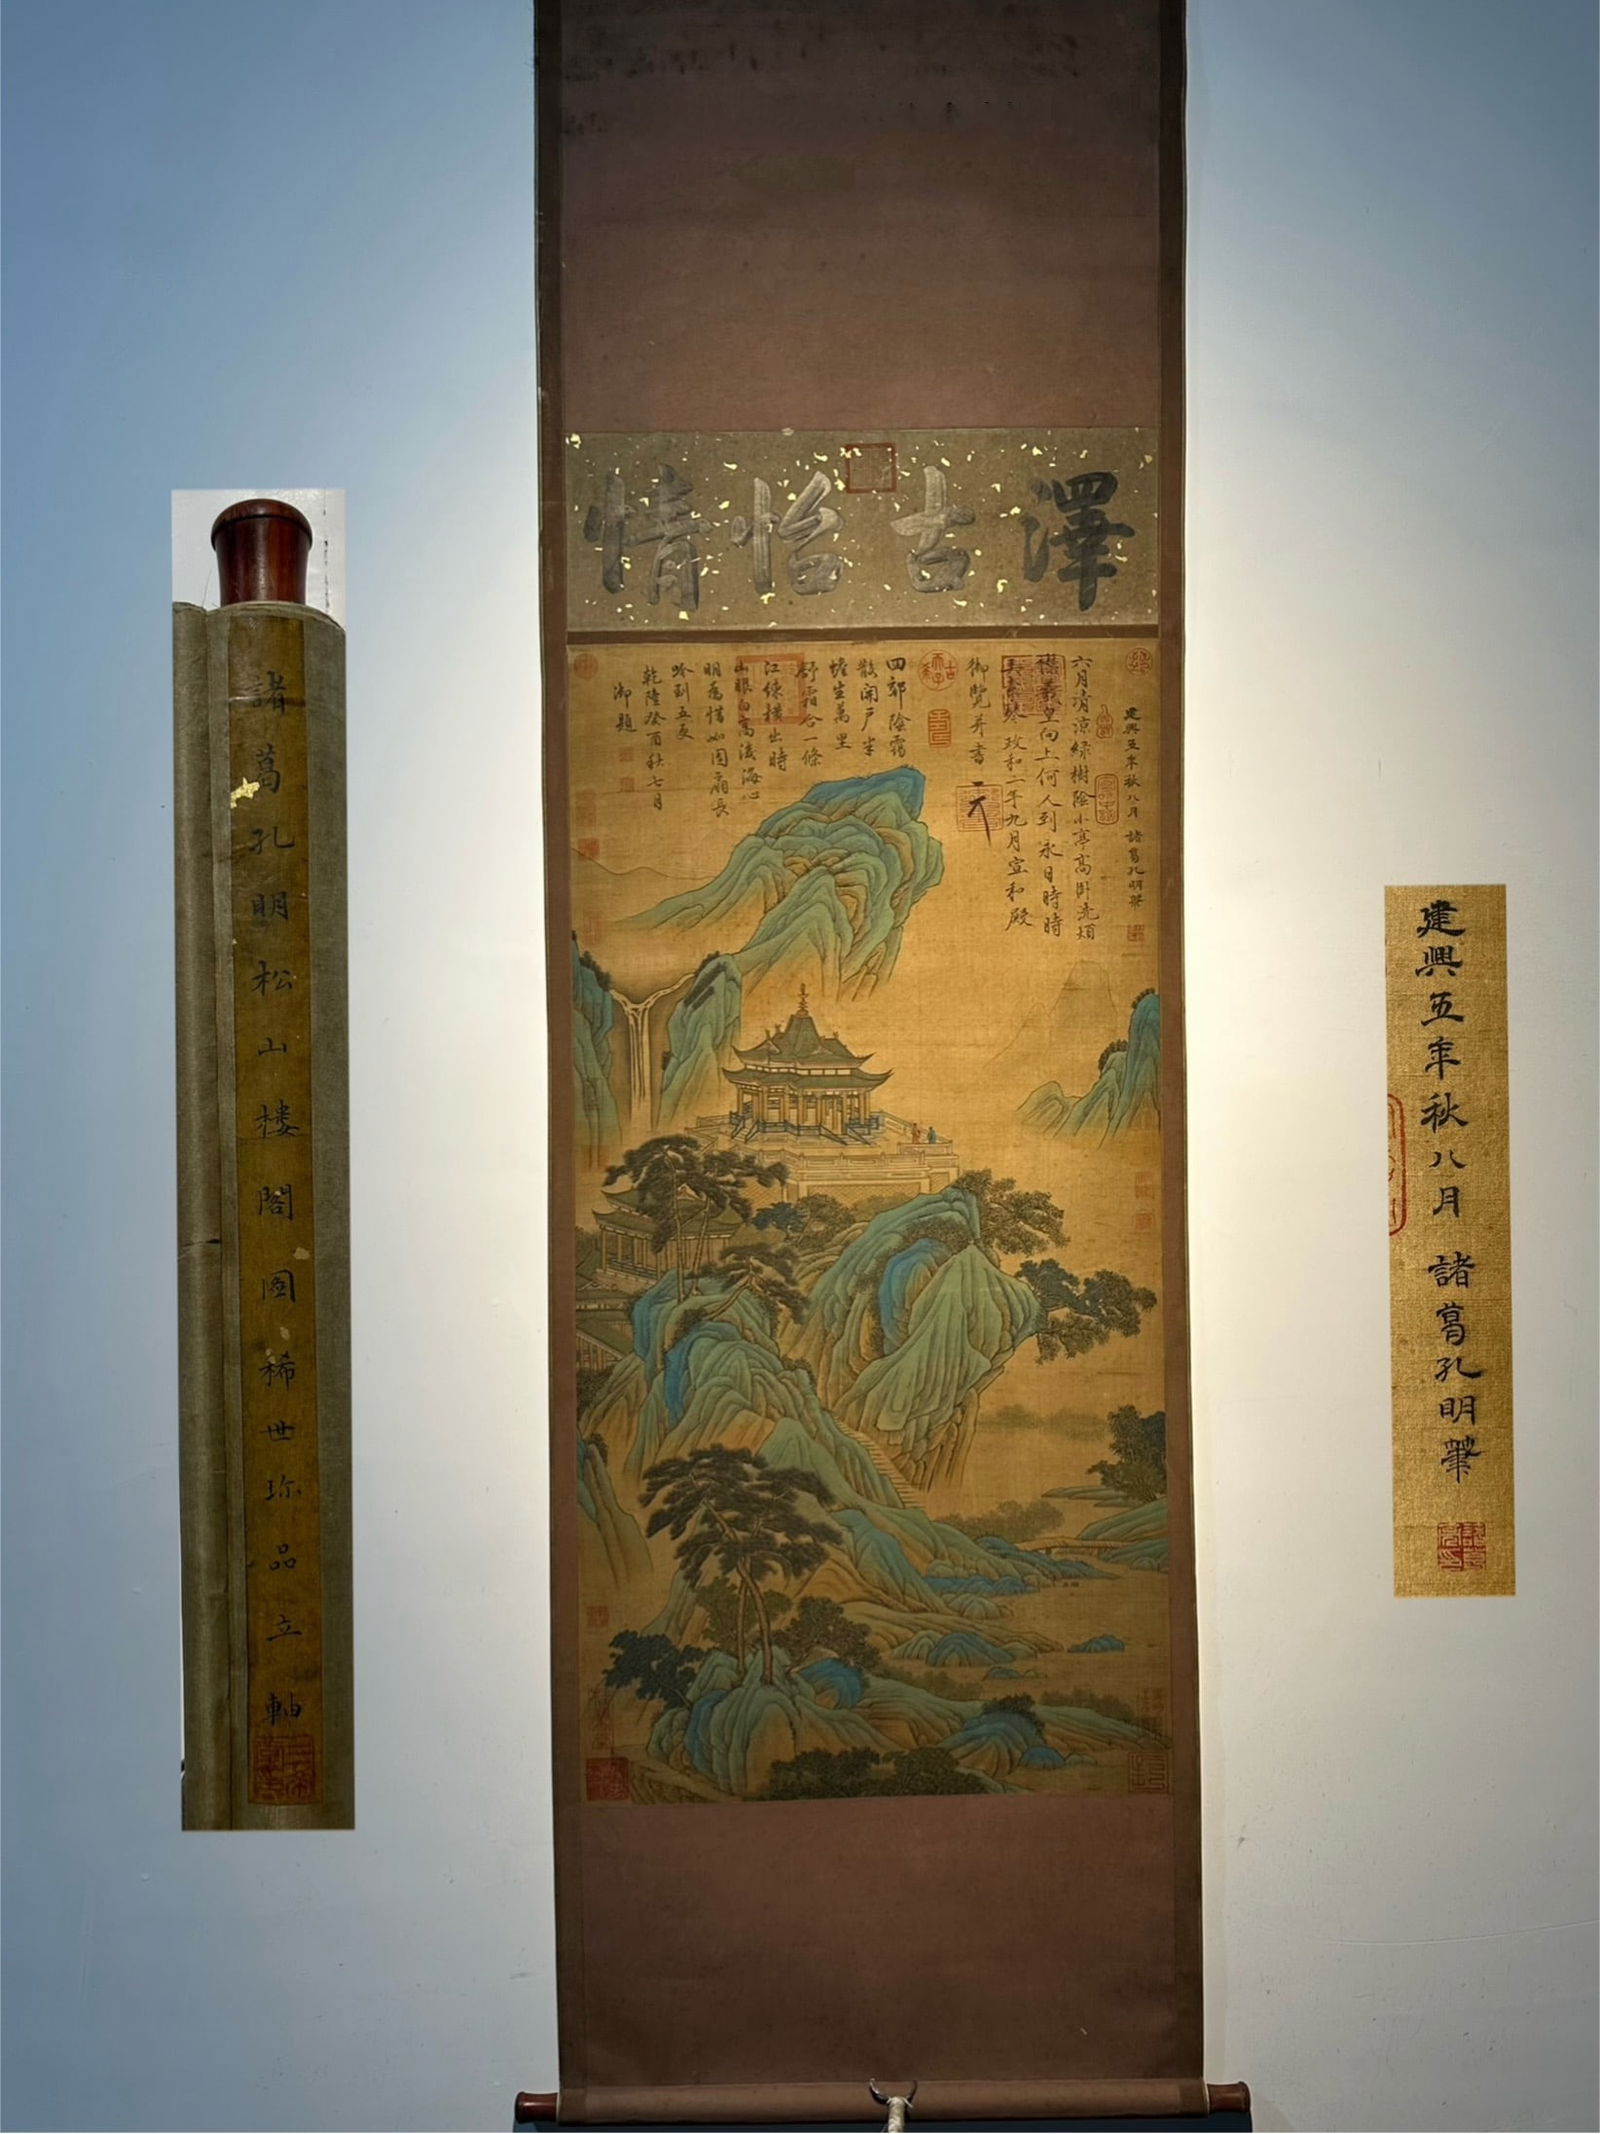 澤古怡情
建興五年秋八月 諸葛孔明筆
六月清涼綠樹陰小亭高卧充煩
襟羲皇向上何人到永日時時
奏素琴政和二年九月宣和殿
御覽并書
天
四郭陰靄
豁開戸半
蟾生萬里
舒霜合一條
江練橫出時
山眼白高
明為惜如圓廂長
吟到五更
乾隆癸酉秋七月
御題
諸葛孔明松山樓閣圖稀世珎品立軸
建興五年秋八月 諸葛孔明筆